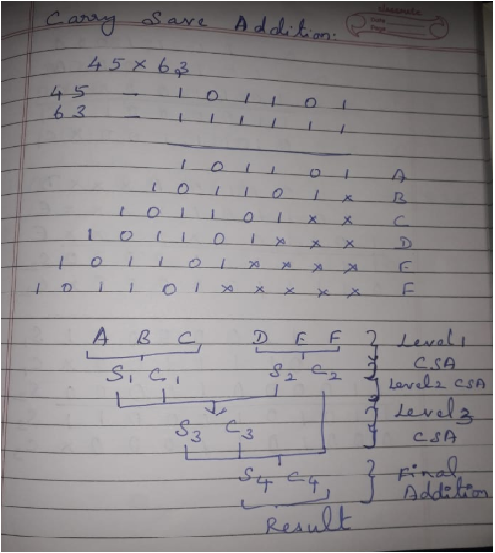 Carry Save Addition.
45 × 63
45 - 1 0 1 1 0 1
63 - 1 1 1 1 1 1
1 0 1 1 0 1 A
1 0 1 1 0 1 x B
1 0 1 1 0 1 x x C
1 0 1 1 0 1 x x x D
1 0 1 1 0 1 x x x x E
1 0 1 1 0 1 x x x x x F
A B C D E F } Level 1
CSA
S1 C1 S2 C2 } Level 2 CSA
S3 C3 } Level 3
CSA
S4 C4 } Final
Addition
Result